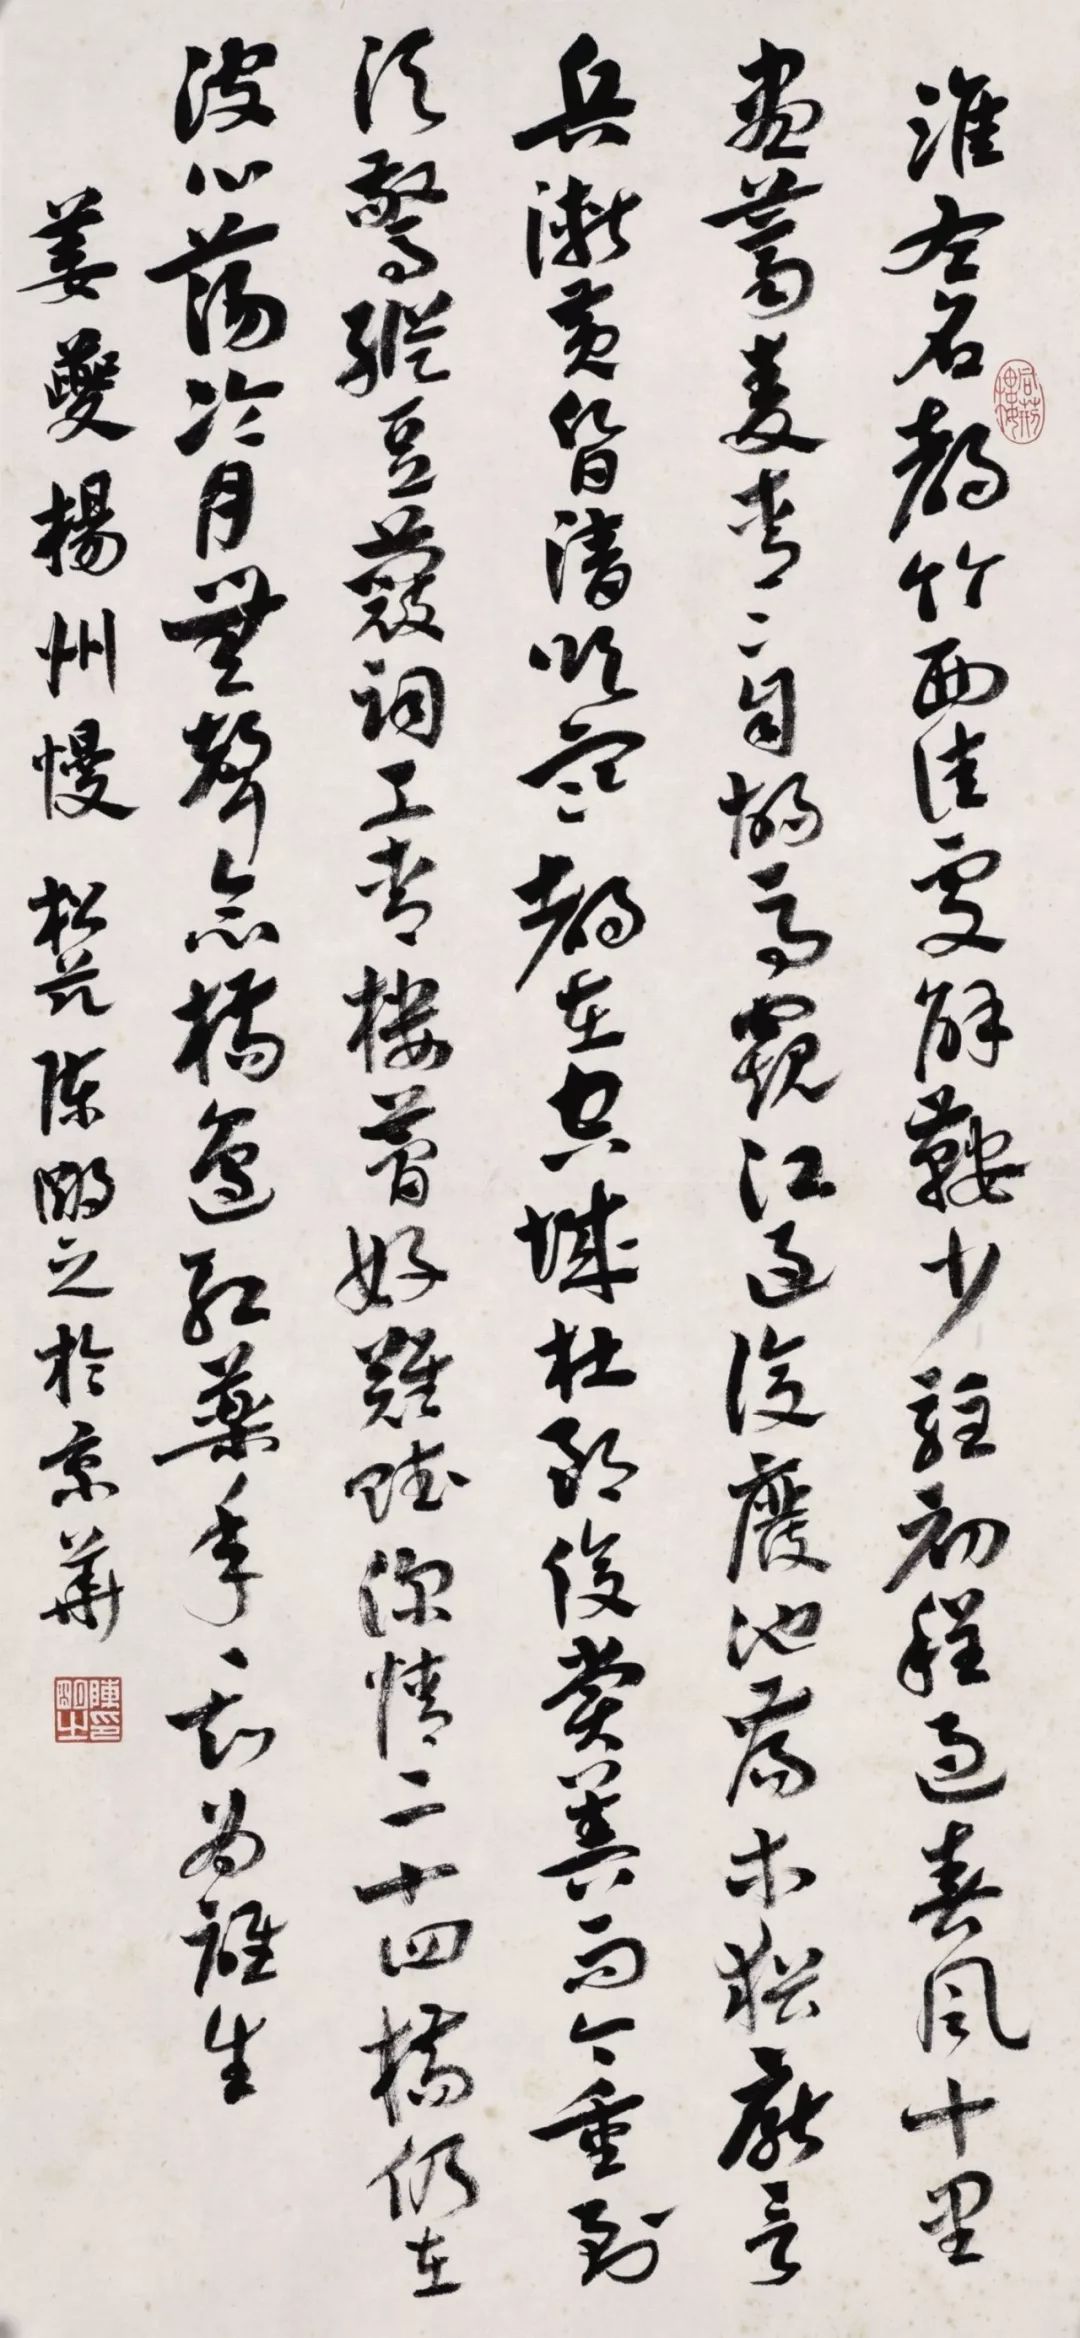 淮左名都竹西佳處解鞍少駐初程過春風十里
盡薺麥青〻自胡馬窺江過後廢池喬木猶厭言
兵漸黃昏清吹寒都在空城杜郎俊賞算而今重到
須驚縱豆蔻詞工青樓夢好難賦深情二十四橋仍在
波心蕩冷月無聲念橋邊紅藥年〻知為誰生
姜夔楊州慢 松陳之於京華